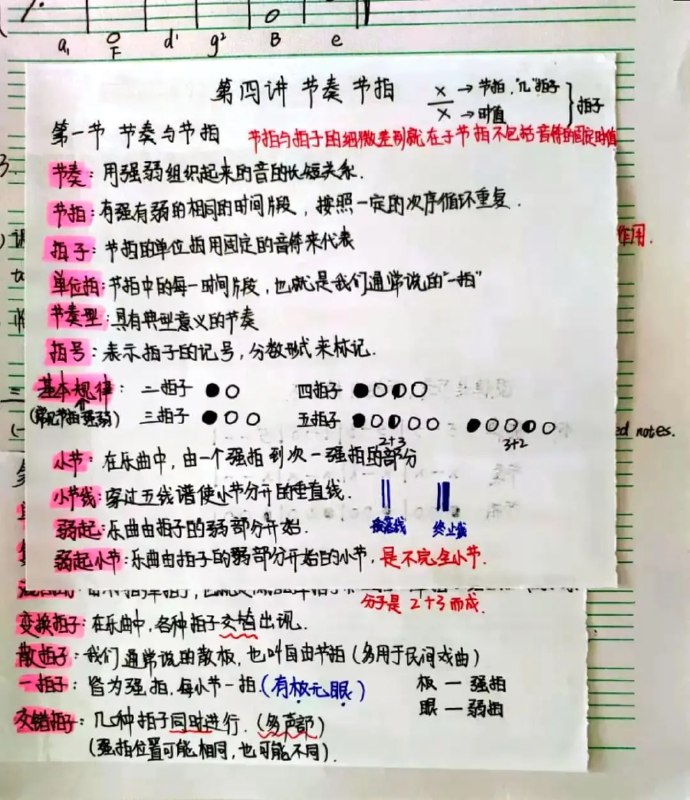 a₁ F d¹ g² B e
第四讲 节奏 节拍
x → 节拍."几"拍子
x → 时值
拍子
第一节 节奏与节拍
节拍与拍子的细微差别就在于节拍不包括音符的固定时值
节奏：用强弱组织起来的音的长短关系.
节拍：有强有弱的相同的时间片段，按照一定的次序循环重复.
作用.
拍子：节拍的单位拍用固定的音符来代表
单位拍：节拍中的每一时间片段，也就是我们通常说的"一拍"
节奏型：具有典型意义的节奏
拍号：表示拍子的记号，分数形式来标记.
基本规律： 二拍子 ●○ 四拍子 ●○◐○
(常见节拍强弱) 三拍子 ●○○ 五拍子 ●○◐○○ ●○○◐○
2+3 3+2
ed notes.
小节：在乐曲中，由一个强拍到次一强拍的部分
小节线：穿过五线谱使小节分开的垂直线.
段落线 终止线
弱起：乐曲由拍子的弱部分开始.
弱起小节：乐曲由拍子的弱部分开始的小节，是不完全小节.
分子是 2+3 而成.
变换拍子：在乐曲中，各种拍子交替出现.
散拍子：我们通常说的散板，也叫自由节拍（多用于民间戏曲）
一拍子：皆为强拍，每小节一拍.（有板无眼） 板 — 强拍
眼 — 弱拍
交错拍子：几种拍子同时进行.（多声部）
（强拍位置可能相同，也可能不同）.